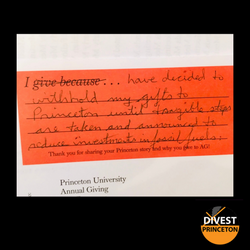 I give because... have decided to
withhold my gifts to
Princeton until tangible steps
are taken and announced to
reduce investments in fossil fuels.
Thank you for sharing your Princeton story and why you give to AG!
Princeton University
Annual Giving
DIVEST
PRINCETON